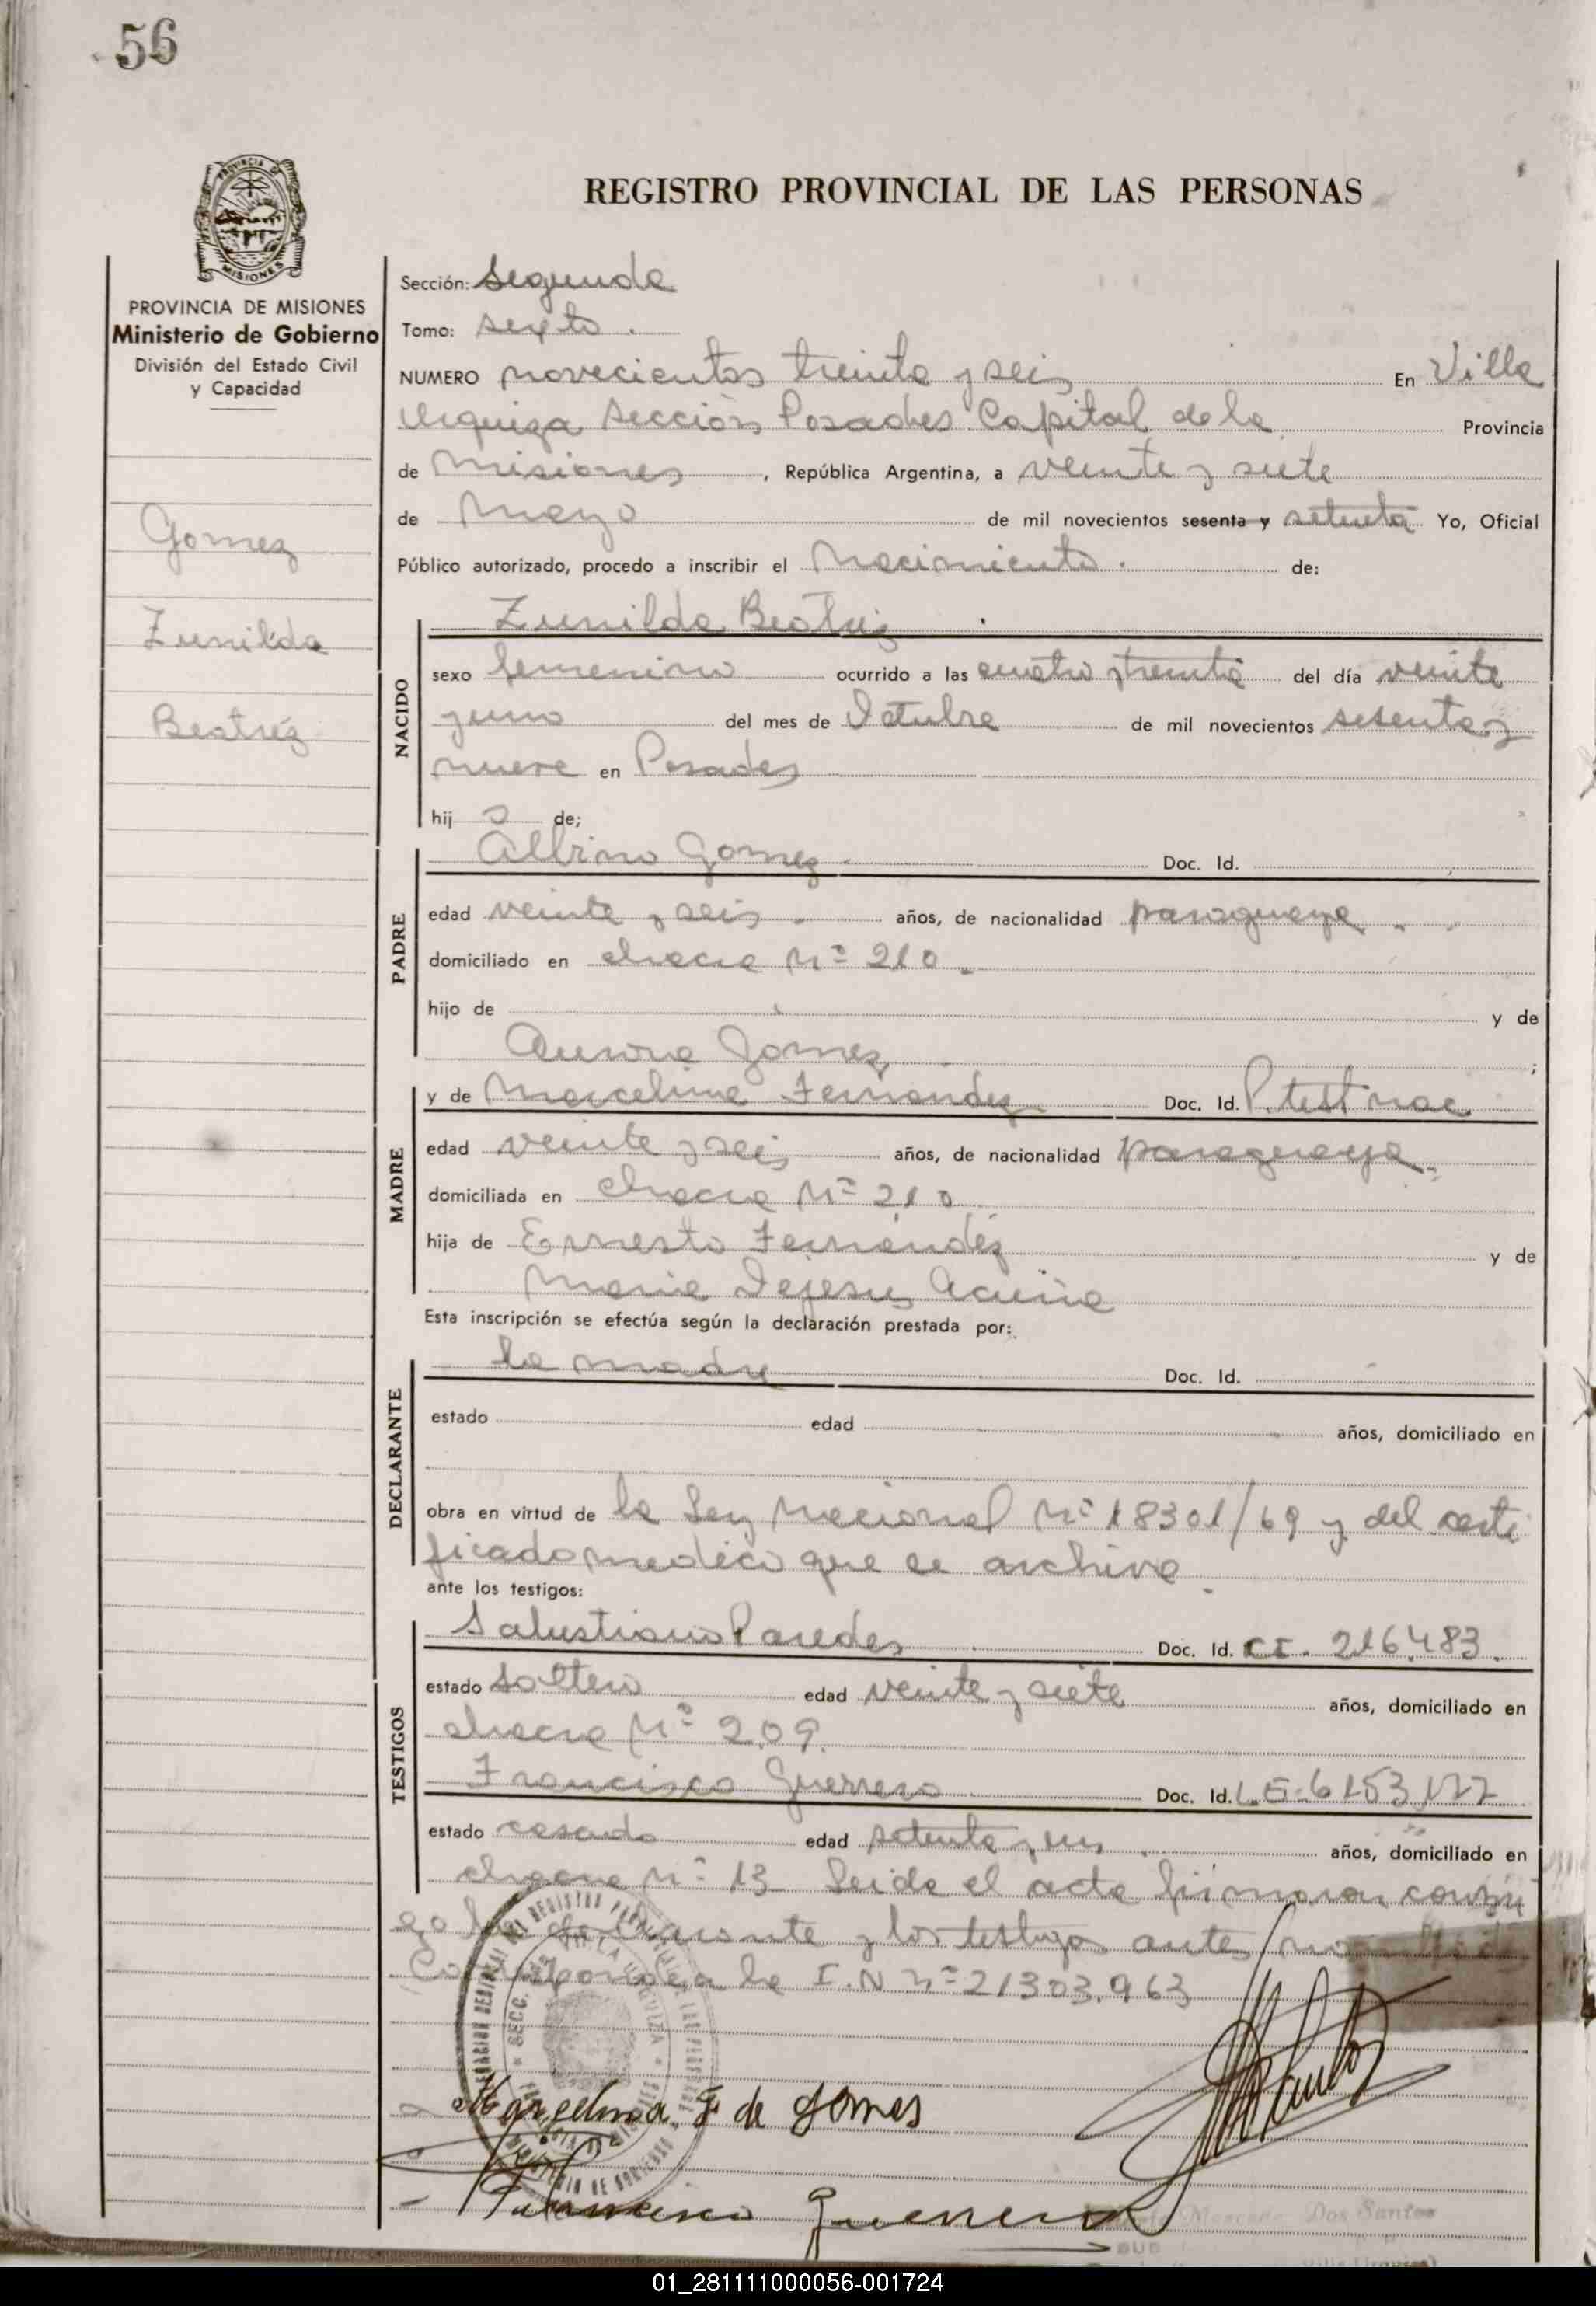 56
REGISTRO PROVINCIAL DE LAS PERSONAS
PROVINCIA DE MISIONES
Ministerio de Gobierno
División del Estado Civil
y Capacidad
Gomez
Zunilda
Beatriz
Sección: Segunda
Tomo: sexto.
NUMERO novecientos treinta y seis En Villa
Urquiza Sección Posadas Capital de la Provincia
de Misiones, República Argentina, a veinte y siete
de Mayo de mil novecientos sesenta y setenta Yo, Oficial
Público autorizado, procedo a inscribir el Nacimiento. de:
NACIDO
Zunilda Beatriz
sexo femenino ocurrido a las cuatro y treinta del día veinte
y uno del mes de Octubre de mil novecientos sesenta y
nueve en Posadas
hij a de;
PADRE
Albino Gomez Doc. Id.
edad veinte y seis. años, de nacionalidad paraguaya
domiciliado en chacra Nº 210
hijo de y de
Aurora Gomez ;
MADRE
y de Marcelina Fernandez Doc. Id. P. test nac
edad veinte y seis años, de nacionalidad paraguaya
domiciliada en chacra Nº 210
hija de Ernesto Fernández y de
Maria Dejesus Acuña
Esta inscripción se efectúa según la declaración prestada por:
DECLARANTE
la madre Doc. Id.
estado edad años, domiciliado en
obra en virtud de la Ley Nacional Nº 18301/69 y del certi
ficado medico que se archiva.
ante los testigos:
TESTIGOS
Salustiano Paredes Doc. Id. CI. 216.483.
estado soltero edad veinte y siete años, domiciliado en
chacra Nº 209.
Francisco Guerrero Doc. Id. L.E. 6153,177
estado casado edad setenta y un años, domiciliado en
chacra Nº 13 Leida el acta firmaron conmi
go la declarante y los testigos antes
Corresponde a la I.N nº 21303.963
Marcelina F de Gomes
Francisco Guerrero
Dos Santos
SUB
01_281111000056-001724